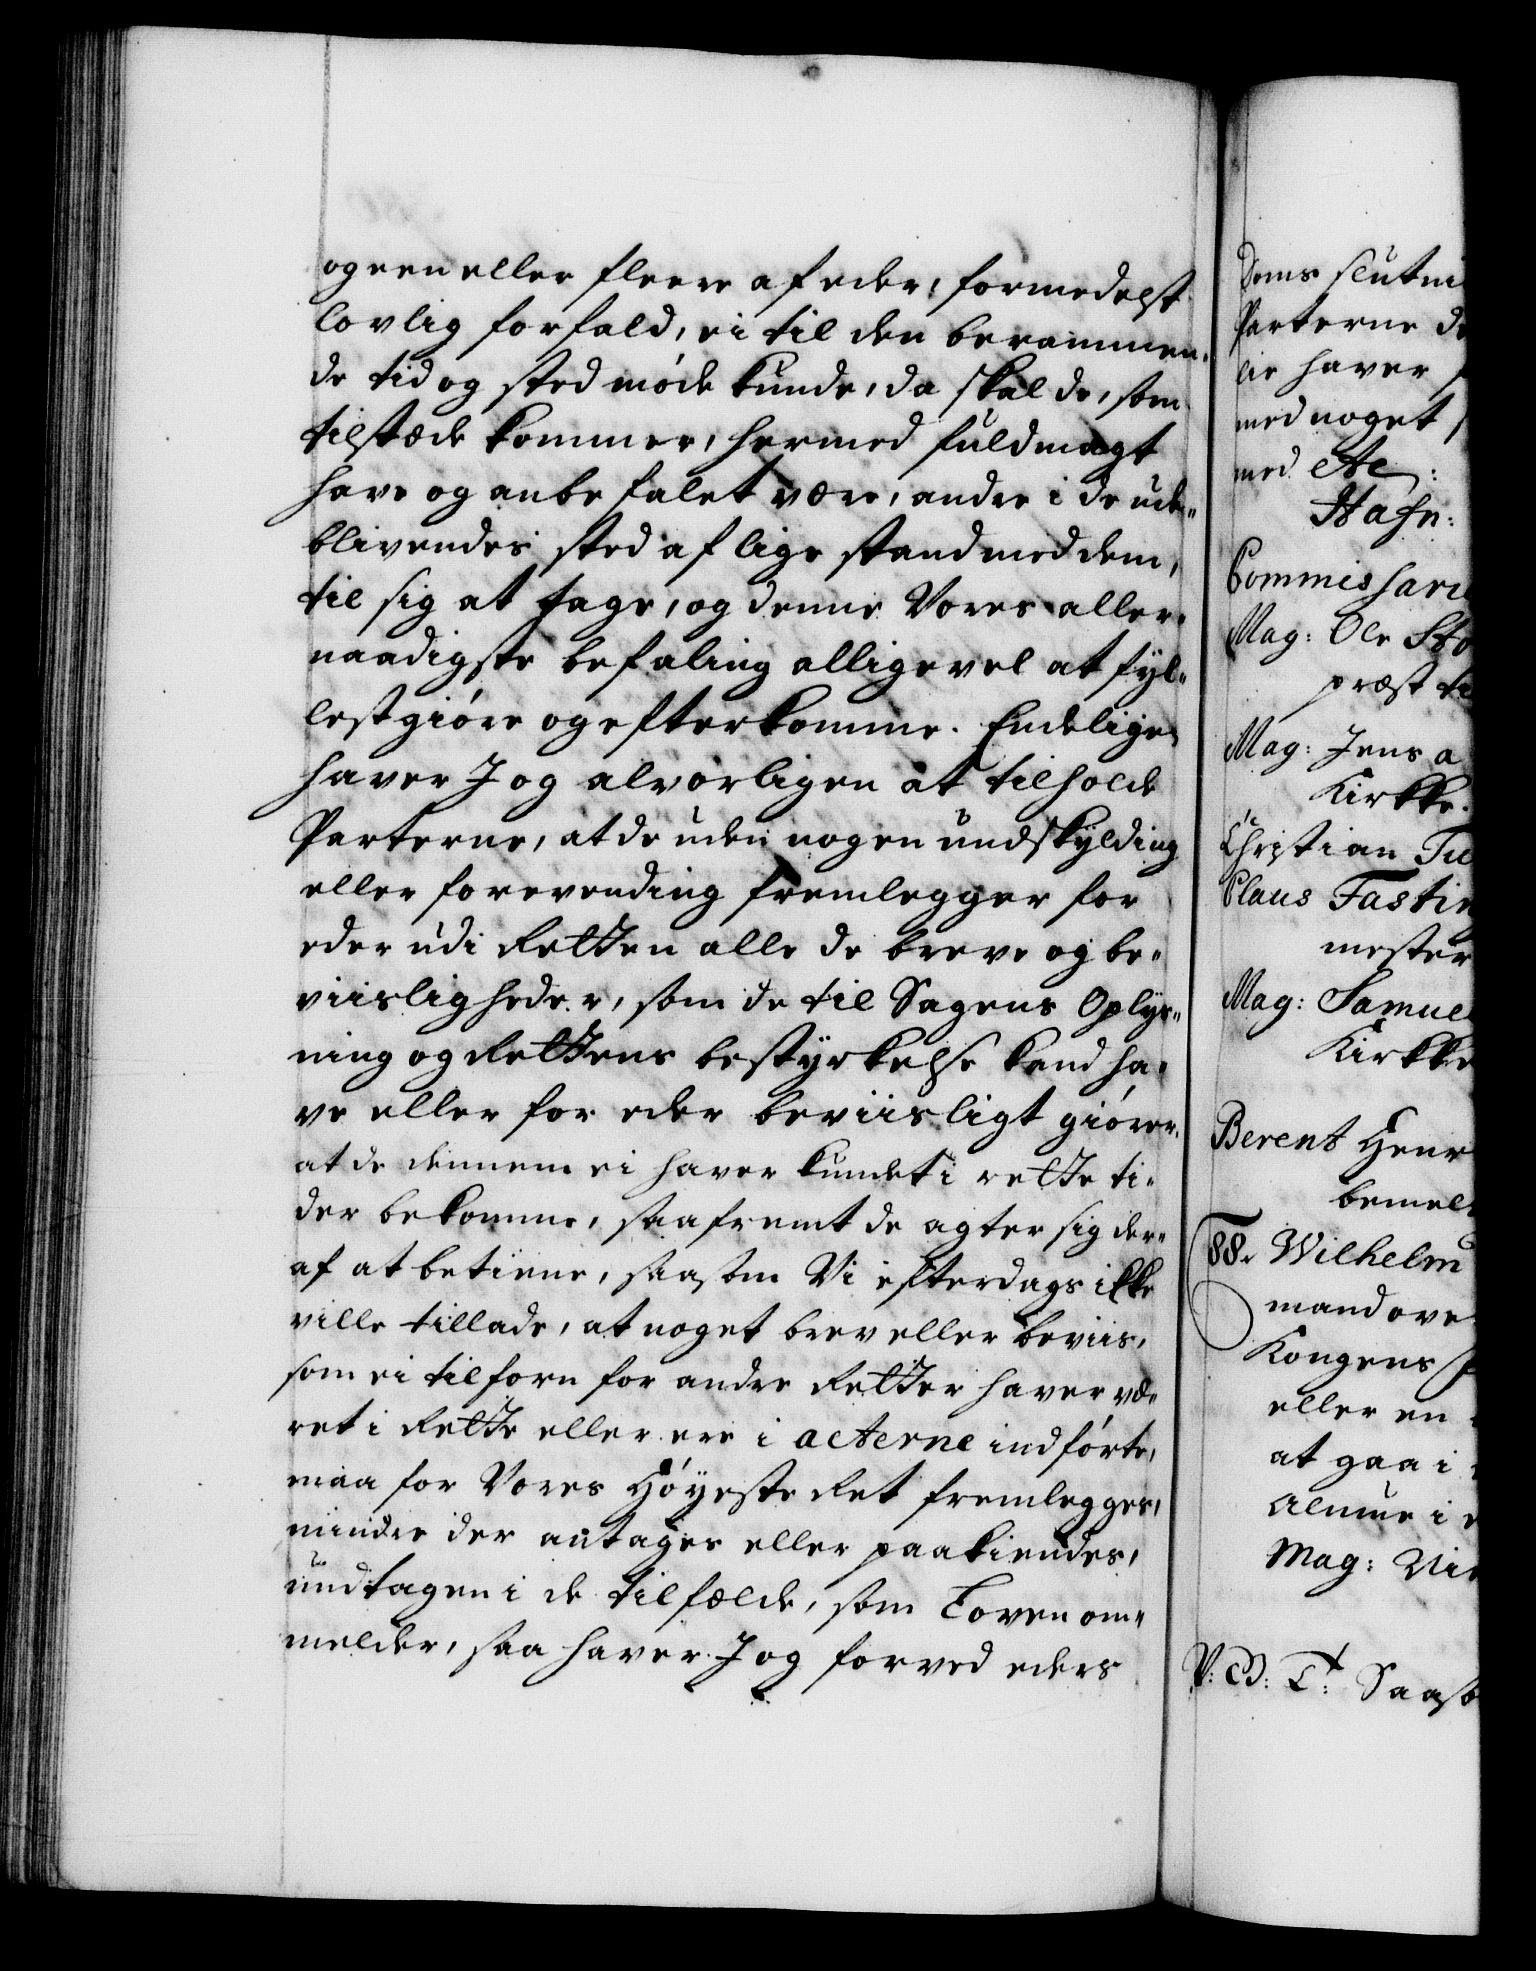 og een eller fleere af eder, formedelst
lovlig forfald, ei til den berammen-
de tid og sted møde kunde, da skal de, som
tilstæde kommer, hermed fuldmagt
have og anbefalet være, andre i de ude-
blivendes sted af lige stand med dem,
til sig at tage, og denne Vores aller-
naadigste befaling alligevel at fyl-
lestgiøre og efterkomme. Endeligen
haver I og alvorligen at tilholde
Parterne, at de uden nogen undskylding
eller forevending fremlegger for
eder udi Retten alle de breve og be-
viisligheder, som de til Sagens Oplys-
ning og Rettens bestyrkelse kand ha-
ve eller for eder beviisligt giører,
at de dennem ei haver kundet i rette ti-
der bekomme, saafremt de agter sig der-
af at betiene, saasom Vi efterdags ikke
ville tillade, at noget brev eller beviis,
som ei tilforn for andre Retter haver væ-
ret i Rette eller ere i acterne indførte,
maa for Vores Høyeste Ret fremlegges,
mindre der antages eller paakiendes,
undtagen i de tilfælde, som Loven om-
melder, saa haver I og forved eders
Doms slutni
Parterne de
lie haver
med noget
med etc:
Hafn:
Commissari
Mag: Ole Sto
præst ti
Mag: Jens a
Kirkke.
Christian Tu
Claus Fastin
mester
Mag: Samuel
Kirkke
Berent Henr
bemelt
88. Wilhelm
mand ove
Kongens
eller en
at gaa i
Almue i
Mag: Nie
V: G: T: Saaso